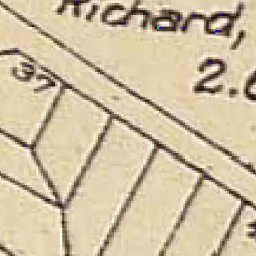 Richard,
2.
37